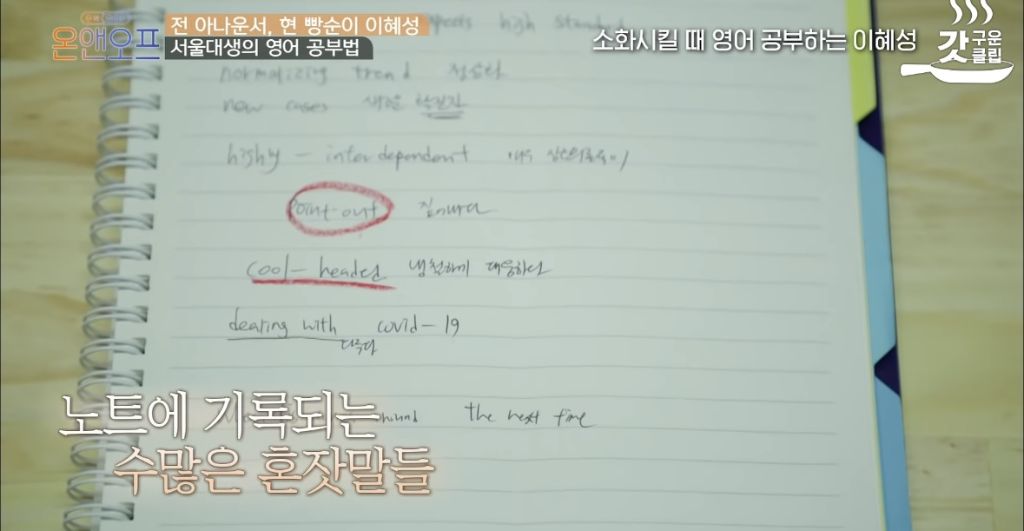 온앤오프
전 아나운서, 현 빵순이 이혜성
서울대생의 영어 공부법
소화시킬 때 영어 공부하는 이혜성
갓구운클립
high standard
normalizing trend
new cases 새로운 확진자
highy - interdependent 매우 상호의존적이
point-out 짚어내다
cool-headed 냉철하게 대응하다
dearing with covid-19
다루다
the next fine
노트에 기록되는
수많은 혼잣말들